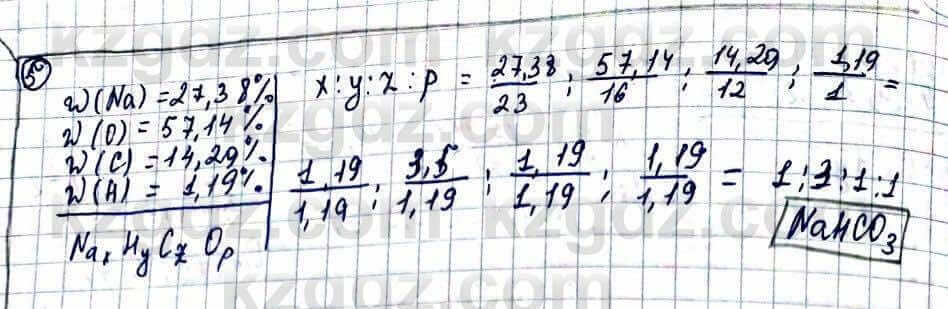 5
w(Na) = 27,38%
w(O) = 57,14%
w(C) = 14,29%
w(H) = 1,19%
NaₓHᵧC_zOₚ
x : y : z : p = 27,38/23 ; 57,14/16 ; 14,29/12 ; 1,19/1 =
1,19/1,19 ; 3,5/1,19 ; 1,19/1,19 ; 1,19/1,19 = 1 : 3 : 1 : 1
NaHCO₃
kzgdz.com kzgdz.com
kzgdz.com kzgdz.com
kzgdz.com